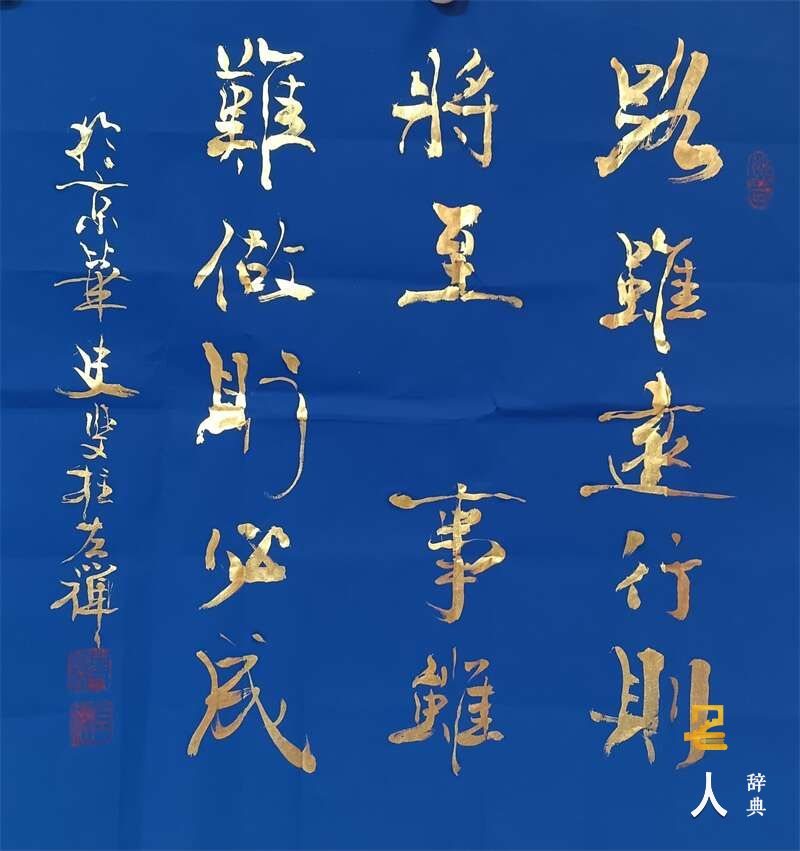 路雖遠行則
將至 事雖
難做則必成
於京華 史雙柱
名人
辞典